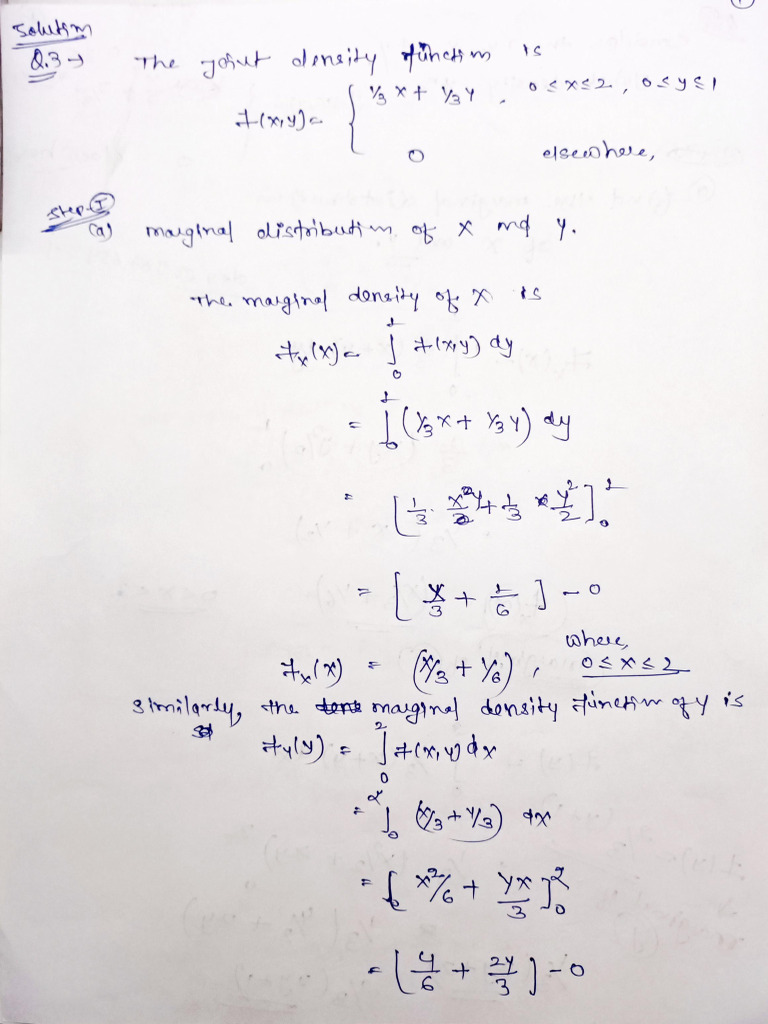 Solution
Q.3→ The joint density function is
f(x,y) = { 1/3 x + 1/3 y , 0 ≤ x ≤ 2, 0 ≤ y ≤ 1
0 elsewhere,
Step-I
(a) marginal distribution of x and y.
The marginal density of x is
fx(x) = ∫₀¹ f(x,y) dy
= ∫₀¹ (1/3 x + 1/3 y) dy
= [1/3 · xy + 1/3 y²/2]₀¹
= [x/3 + 1/6] - 0
where,
fx(x) = (x/3 + 1/6), 0 ≤ x ≤ 2
Similarly, the marginal density function of y is
fy(y) = ∫₀² f(x,y) dx
= ∫₀² (x/3 + y/3) dx
= [x²/6 + yx/3]₀²
= [4/6 + 2y/3] - 0